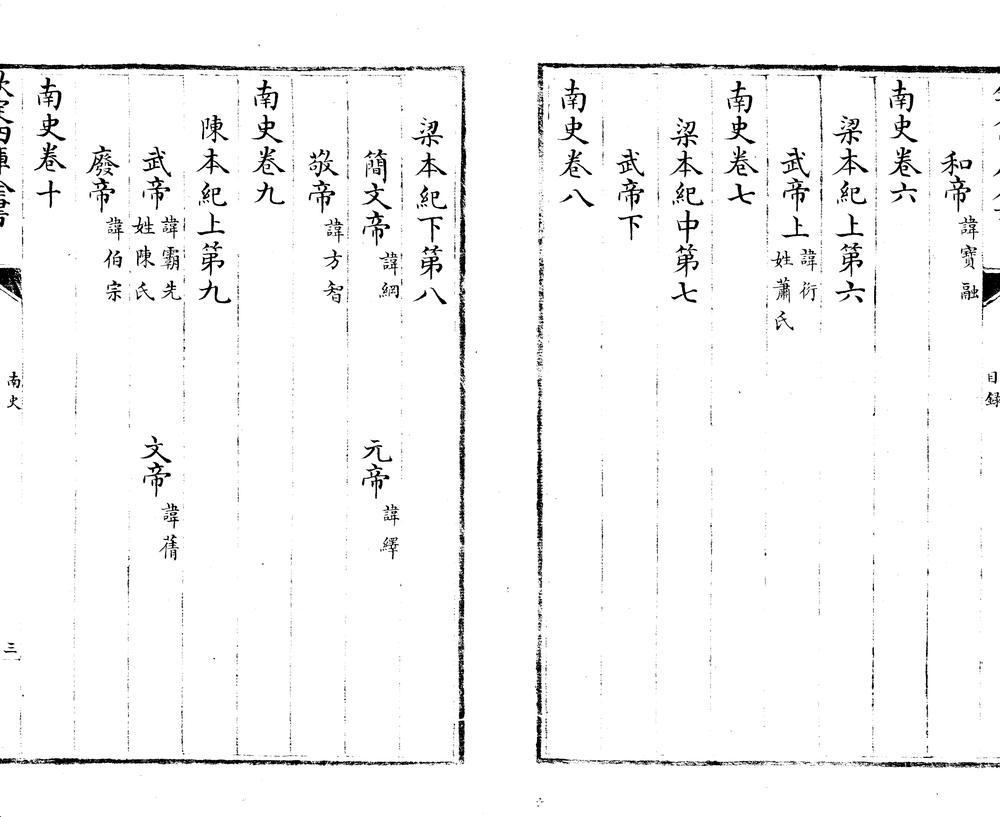 目錄
和帝 諱寶融
南史卷六
梁本紀上第六
武帝上 諱衍 姓蕭氏
南史卷七
梁本紀中第七
武帝下
南史卷八
梁本紀下第八
簡文帝 諱綱 元帝 諱繹
敬帝 諱方智
南史卷九
陳本紀上第九
武帝 諱霸先 姓陳氏 文帝 諱蒨
廢帝 諱伯宗
南史卷十
欽定四庫全書 南史 三